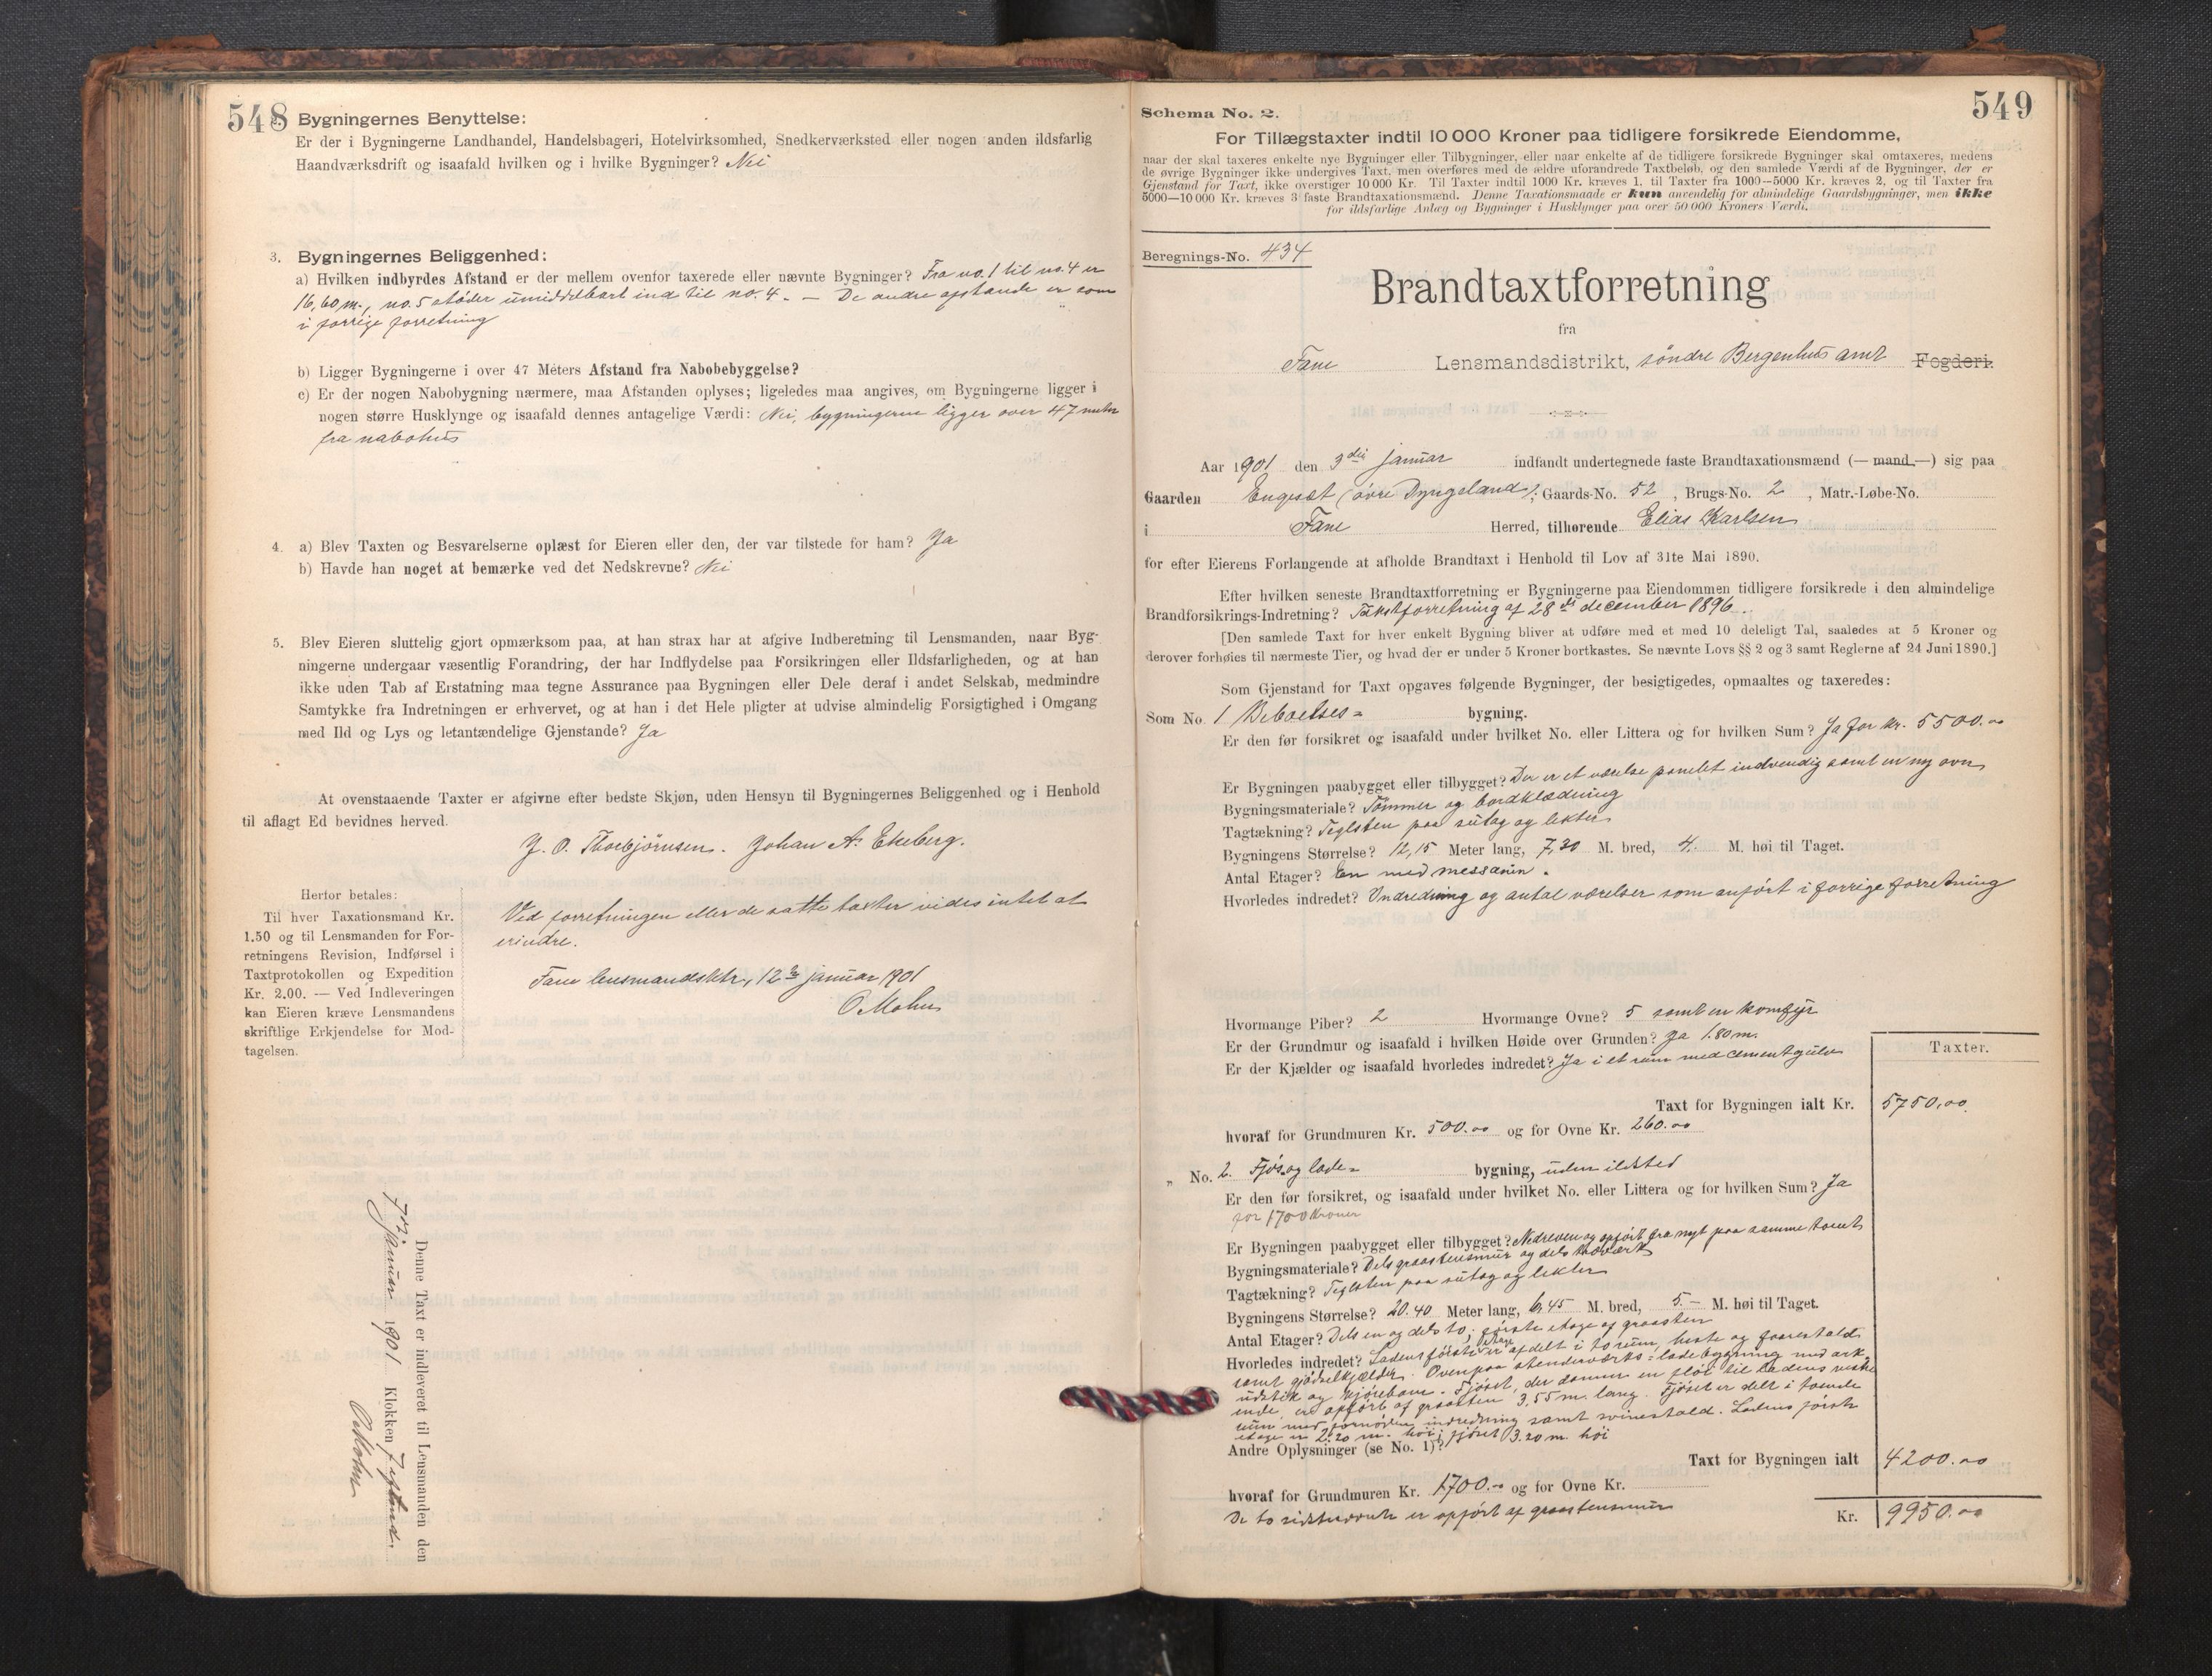 548
Bygningernes Benyttelse:
Er der i Bygningerne Landhandel, Handelsbageri, Hotelvirksomhed, Snedkerværksted eller nogen anden ildsfarlig
Haandværksdrift og isaafald hvilken og i hvilke Bygninger? Nei
3. Bygningernes Beliggenhed:
a) Hvilken indbyrdes Afstand er der mellem ovenfor taxerede eller nævnte Bygninger? Fra no. 1 til no. 4 er
16,60 m., no. 5 støder umiddelbart ind til no. 4. — De andre afstande er som
i forrige forretning
b) Ligger Bygningerne i over 47 Meters Afstand fra Nabobebyggelse?
c) Er der nogen Nabobygning nærmere, maa Afstanden oplyses; ligeledes maa angives, om Bygningerne ligger i
nogen større Husklynge og isaafald dennes antagelige Værdi: Nei, bygningerne ligger over 47 meter
fra nabohus
4. a) Blev Taxten og Besvarelserne oplæst for Eieren eller den, der var tilstede for ham? Ja
b) Havde han noget at bemærke ved det Nedskrevne? Nei
5. Blev Eieren sluttelig gjort opmærksom paa, at han strax har at afgive Indberetning til Lensmanden, naar Byg-
ningerne undergaar væsentlig Forandring, der har Indflydelse paa Forsikringen eller Ildsfarligheden, og at han
ikke uden Tab af Erstatning maa tegne Assurance paa Bygningen eller Dele deraf i andet Selskab, medmindre
Samtykke fra Indretningen er erhvervet, og at han i det Hele pligter at udvise almindelig Forsigtighed i Omgang
med Ild og Lys og letantændelige Gjenstande? Ja
At ovenstaaende Taxter er afgivne efter bedste Skjøn, uden Hensyn til Bygningernes Beliggenhed og i Henhold
til aflagt Ed bevidnes herved.
J. O. Thorbjørnsen. Johan A. Ekeberg.
Herfor betales:
Til hver Taxationsmand Kr.
1.50 og til Lensmanden for For-
retningens Revision, Indførsel i
Taxtprotokollen og Expedition
Kr. 2.00. — Ved Indleveringen
kan Eieren kræve Lensmandens
skriftlige Erkjendelse for Mod-
tagelsen.
Ved forretningen eller de satte taxter vides intet at
erindre.
Fane lensmandsktr, 12te januar 1901
O Mohn
Denne Taxt er indleveret til Lensmanden den
7de Januar 1901 Klokken 7 eftmd.
O Mohn
549
Schema No. 2.
For Tillægstaxter indtil 10 000 Kroner paa tidligere forsikrede Eiendomme,
naar der skal taxeres enkelte nye Bygninger eller Tilbygninger, eller naar enkelte af de tidligere forsikrede Bygninger skal omtaxeres, medens
de øvrige Bygninger ikke undergives Taxt, men overføres med de ældre uforandrede Taxtbeløb, og den samlede Værdi af de Bygninger, der er
Gjenstand for Taxt, ikke overstiger 10 000 Kr. Til Taxter indtil 1000 Kr. kræves 1, til Taxter fra 1000—5000 Kr. kræves 2, og til Taxter fra
5000—10 000 Kr. kræves 3 faste Brandtaxationsmænd. Denne Taxationsmaade er kun anvendelig for almindelige Gaardsbygninger, men ikke
for ildsfarlige Anlæg og Bygninger i Husklynger paa over 50 000 Kroners Værdi.
Beregnings-No. 434
Brandtaxtforretning
fra
Fane Lensmandsdistrikt, søndre Bergenhus amt Fogderi.
Aar 1901 den 3die januar indfandt undertegnede faste Brandtaxationsmænd (— mand —) sig paa
Gaarden Engeset (øvre Dyngeland), Gaards-No. 52, Brugs-No. 2, Matr.-Løbe-No.
i Fane Herred, tilhørende Elias Karlsen
for efter Eierens Forlangende at afholde Brandtaxt i Henhold til Lov af 31te Mai 1890.
Efter hvilken seneste Brandtaxtforretning er Bygningerne paa Eiendommen tidligere forsikrede i den almindelige
Brandforsikrings-Indretning? Takstforretning af 28de december 1896.
[Den samlede Taxt for hver enkelt Bygning bliver at udføre med et med 10 deleligt Tal, saaledes at 5 Kroner og
derover forhøies til nærmeste Tier, og hvad der er under 5 Kroner bortkastes. Se nævnte Lovs §§ 2 og 3 samt Reglerne af 24 Juni 1890.]
Som Gjenstand for Taxt opgaves følgende Bygninger, der besigtigedes, opmaaltes og taxeredes:
Som No. 1 Beboelses= bygning.
Er den før forsikret og isaafald under hvilket No. eller Littera og for hvilken Sum? Ja for kr. 5500.00
Er Bygningen paabygget eller tilbygget? Der er et værelse panelet indvendig samt en ny ovn
Bygningsmateriale? Tømmer og bordklædning
Tagtækning? Teglsten paa sutag og lekter
Bygningens Størrelse? 12,15 Meter lang, 7,20 M. bred, 4. M. høi til Taget.
Antal Etager? En med messanin.
Hvorledes indredet? Indredning og antal værelser som anført i forrige forretning
Hvormange Piber? 2 Hvormange Ovne? 5 samt en komfyr
Er der Grundmur og isaafald i hvilken Høide over Grunden? Ja 1.80 m.
Er der Kjælder og isaafald hvorledes indredet? Ja i et rum med cementgulv
Taxter.
Taxt for Bygningen ialt Kr. 5750,00
hvoraf for Grundmuren Kr. 500.00 og for Ovne Kr. 260.00
" No. 2. Fjøs og lade= bygning, uden ildsted
Er den før forsikret, og isaafald under hvilket No. eller Littera og for hvilken Sum? Ja
for 1700 Kroner
Er Bygningen paabygget eller tilbygget? Nedreven og opført fra nyt paa samme tomt
Bygningsmateriale? Dels graastensmur og dels
Tagtækning? Teglsten paa sutag og lekter
Bygningens Størrelse? 20.40 Meter lang, 6,45 M. bred, 5.— M. høi til Taget.
Antal Etager? Dels en og dels to; første etage af graasten
Hvorledes indredet? Ladens første etage er afdelt i to rum, heste og faarestald
samt gjødselkjælder. Ovenpaa stenderværks=ladebygning med ark,
udstik og kjørebom. Fjøset, der danner en fløi til ladens vestre
ende, er opført af graasten 3,55 m. lang. Fjøset er delt i tvende
rum med fornøden indredning samt svinestald. Ladens første
etage er 2.20 m. høi; fjøset 3.20 m. høi
Andre Oplysninger (se No. 1)?
Taxt for Bygningen ialt 4200.00
hvoraf for Grundmuren Kr. 1700.00 og for Ovne Kr.
De to er opført af graastensmur
Kr. 9950.00